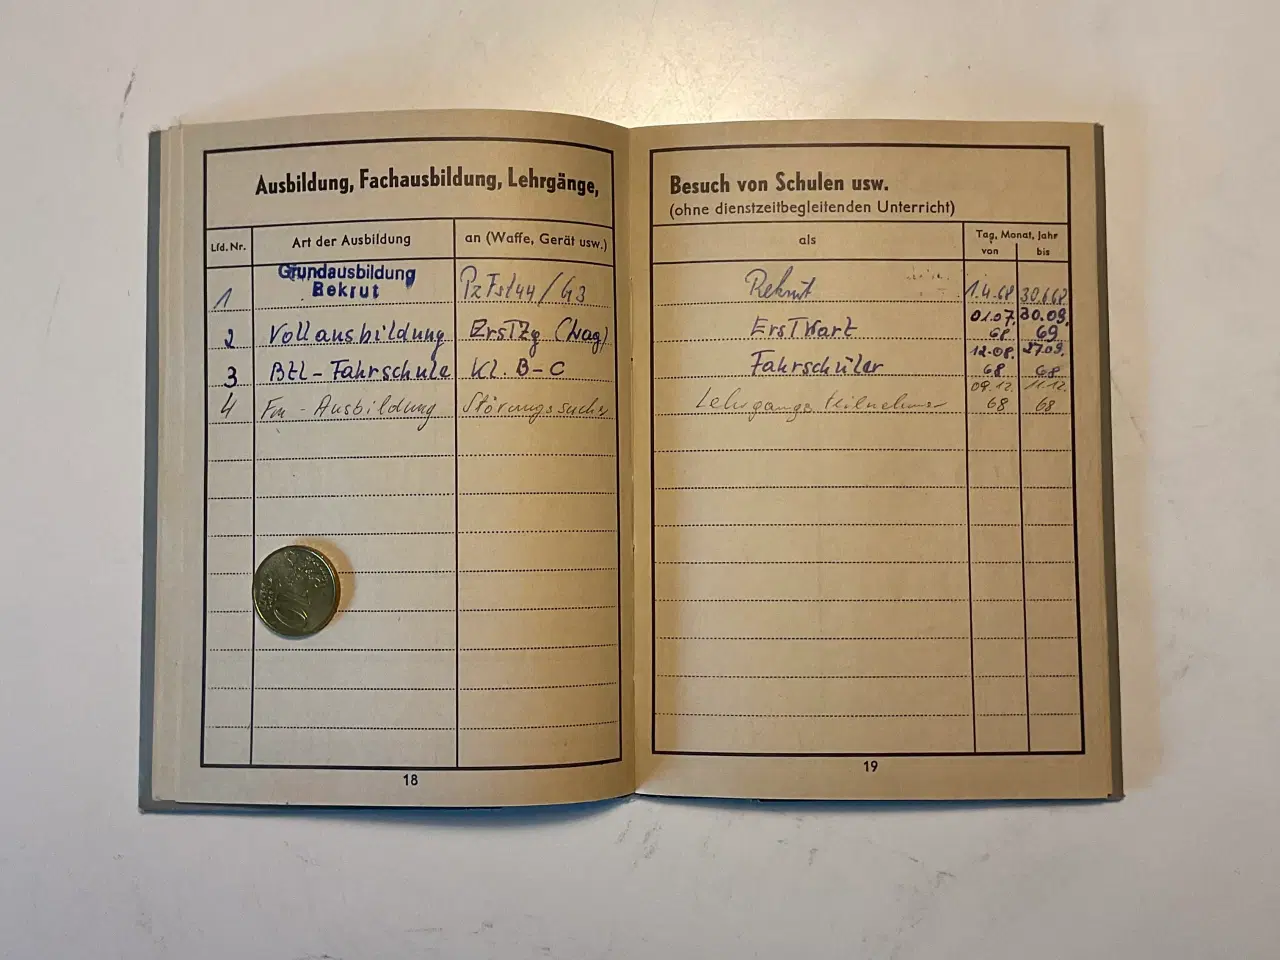 Ausbildung, Fachausbildung, Lehrgänge,
Lfd. Nr. Art der Ausbildung an (Waffe, Gerät usw.)
Grundausbildung
1 Rekrut PzFst44/G3
2 Vollausbildung ErsTZg (Nag)
3 BtL-Fahrschule Kl. B-C
4 Fm-Ausbildung Störungssuche
18
Besuch von Schulen usw.
(ohne dienstzeitbegleitenden Unterricht)
als Tag, Monat, Jahr
von bis
Rekrut 1.4.68 30.6.68
01.07. 30.09.
ErsTWart 68 69
12.08. 27.09.
Fahrschüler 68 68
09.12. 11.12.
Lehrgangsteilnehmer 68 68
19
10